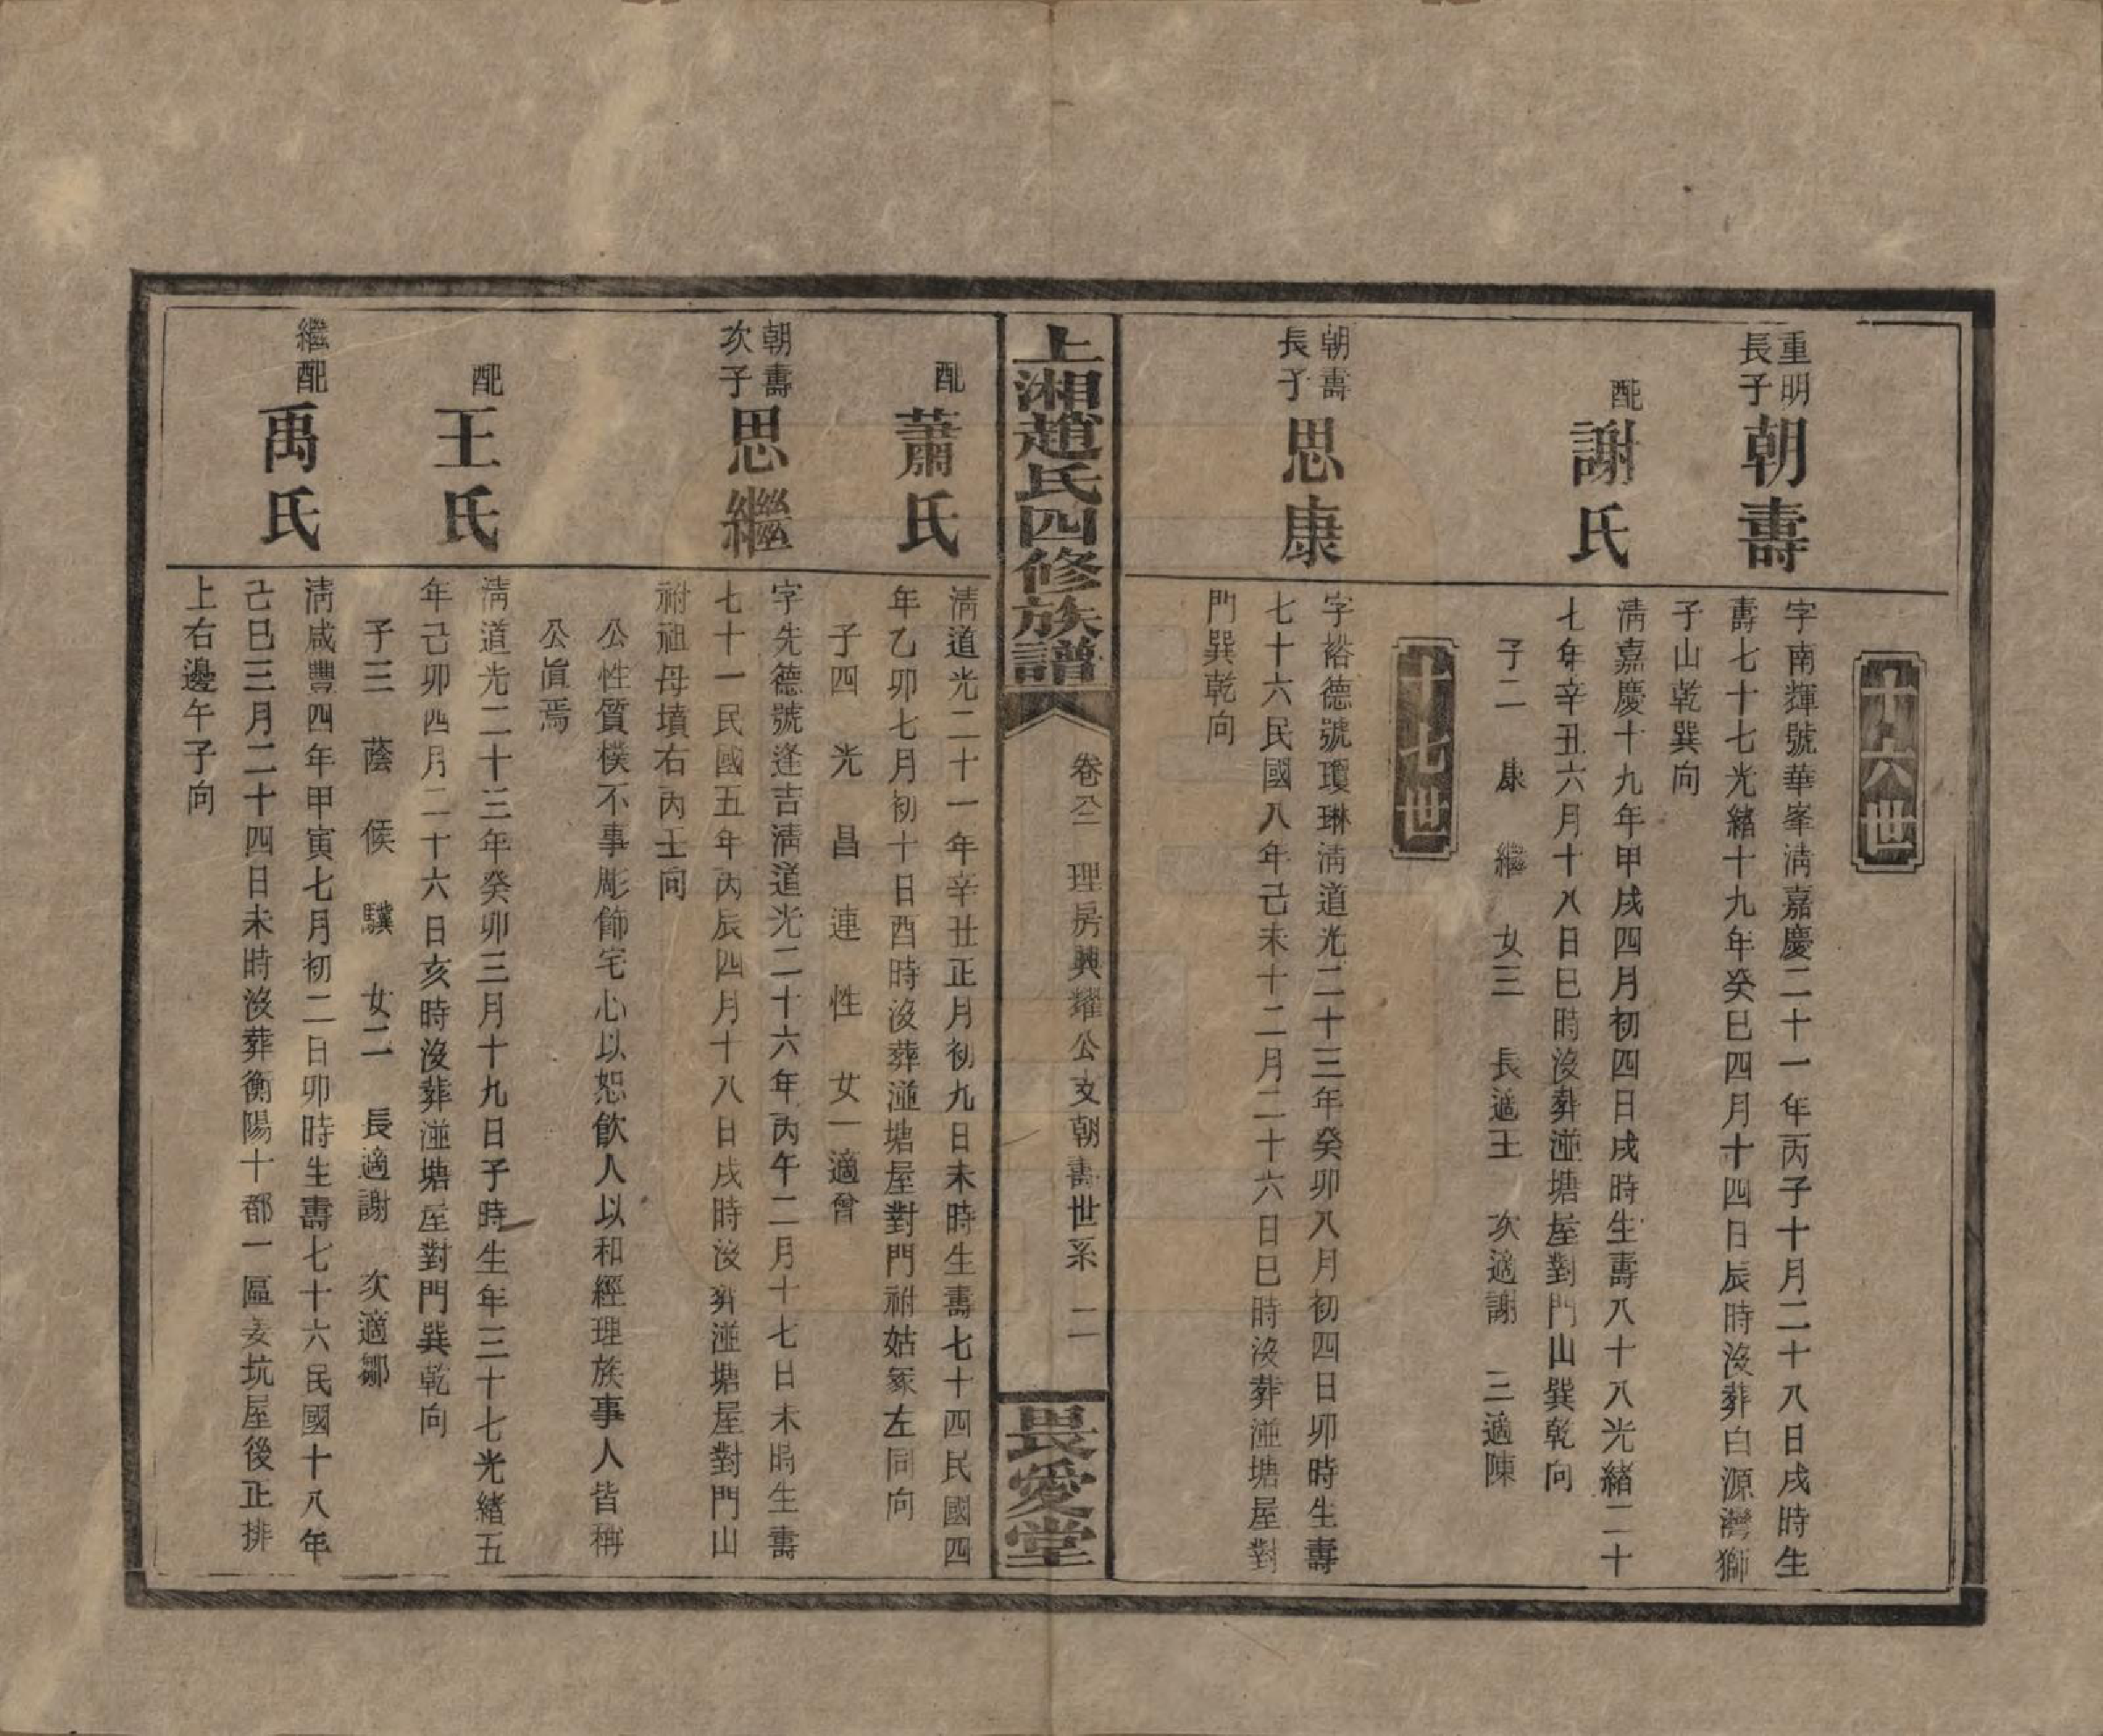 十六世
重明
長子
朝壽
字南輝號華峯淸嘉慶二十一年丙子十月二十八日戌時生
壽七十七光緒十九年癸巳四月十四日辰時沒葬白源灣獅
子山乾巽向
配
謝氏
淸嘉慶十九年甲戌四月初四日戌時生壽八十八光緒二十
七年辛丑六月十八日巳時沒葬湴塘屋對門山巽乾向
子二 康 繼 女三 長適王 次適謝 三適陳
十七世
朝壽
長子
思康
字裕德號瓊琳淸道光二十三年癸卯八月初四日卯時生壽
七十六民國八年己未十二月二十六日巳時沒葬湴塘屋對
門巽乾向
上湘趙氏四修族譜
卷 理房興耀公支朝壽世系 二
畏愛堂
配
蕭氏
淸道光二十一年辛丑正月初九日未時生壽七十四民國四
年乙卯七月初十日酉時沒葬湴塘屋對門祔姑冢左同向
子四 光 昌 連 性 女一適曾
朝壽
次子
思繼
字先德號逢吉淸道光二十六年丙午二月十七日未時生壽
七十一民國五年丙辰四月十八日戌時沒葬湴塘屋對門山
祔祖母墳右丙壬向
公性質樸不事彫飾宅心以恕飮人以和經理族事人皆稱
公眞焉
配
王氏
淸道光二十三年癸卯三月十九日子時生年三十七光緒五
年己卯四月二十六日亥時沒葬湴塘屋對門巽乾向
子三 蔭 候 驥 女二 長適謝 次適鄒
繼配
禹氏
淸咸豐四年甲寅七月初二日卯時生壽七十六民國十八年
己巳三月二十四日未時沒葬衡陽十都一區姜坑屋後正排
上右邊午子向